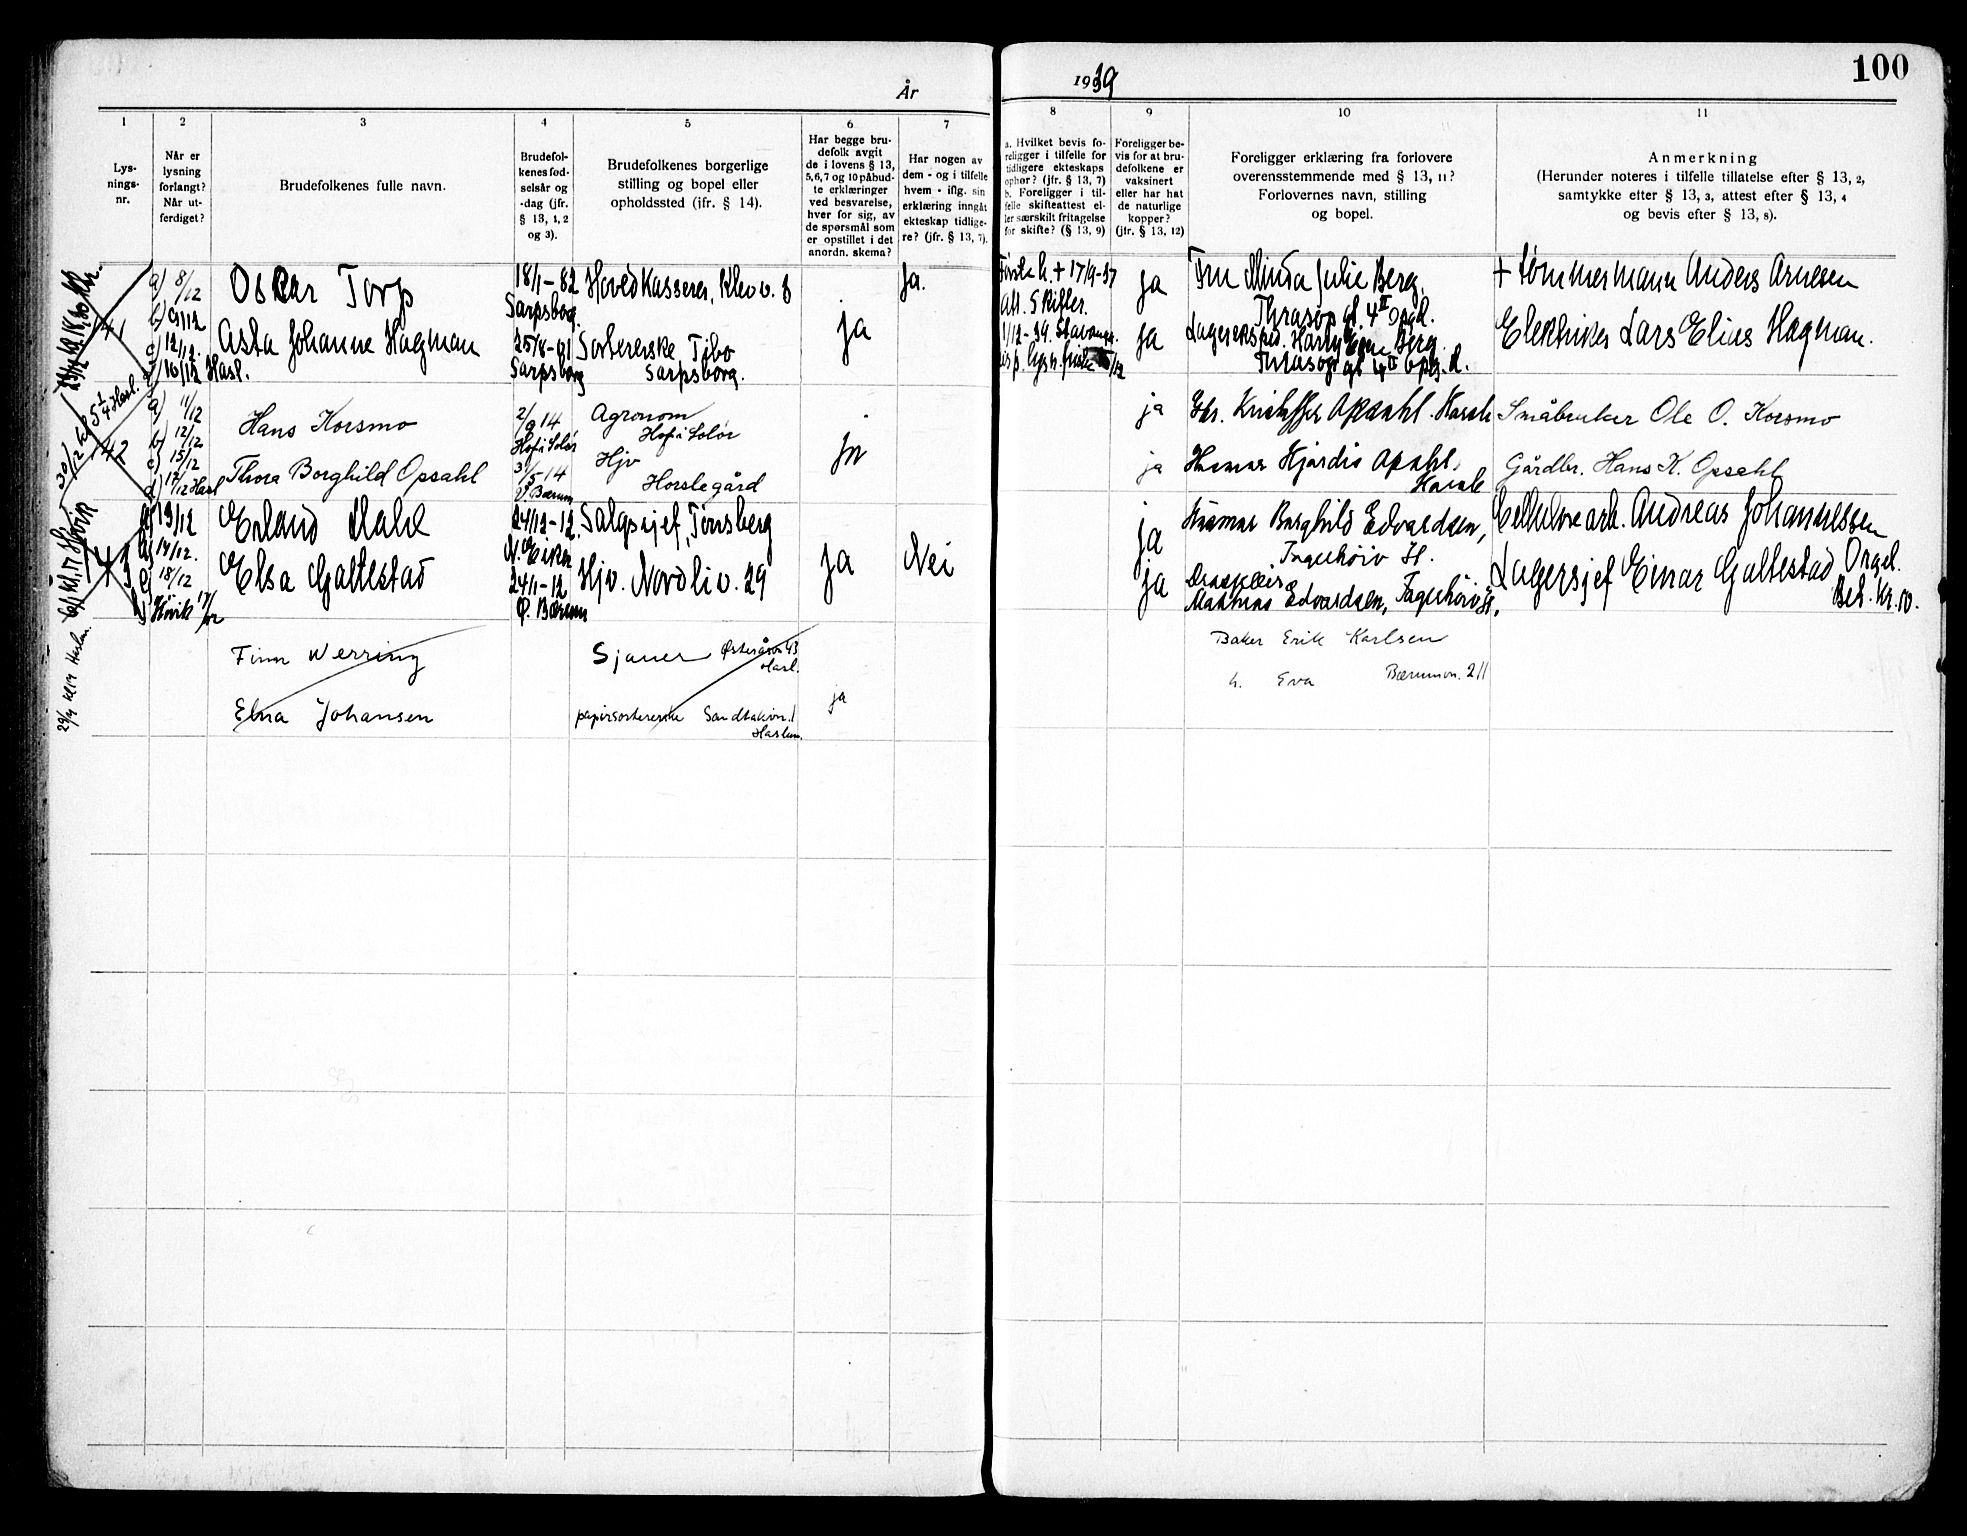 100
År
1939
1
2
3
4
5
6
7
8
9
10
11
Lys-
nings-
nr.
Når er
lysning
forlangt?
Når ut-
ferdiget?
Brudefolkenes fulle navn.
Brudefol-
kenes fød-
selsår og
-dag (jfr.
§ 13, 1, 2
og 3).
Brudefolkenes borgerlige
stilling og bopel eller
opholdssted (jfr. § 14).
Har begge bru-
defolk avgit
de i lovens § 13,
5,6,7 og 10 påbud-
te erklæringer
ved besvarelse,
hver for sig, av
de spørsmål som
er opstillet i det
anordn. skema?
Har nogen av
dem - og i tilfelle
hvem - iflg. sin
erklæring inngåt
ekteskap tidlige-
re? (jfr. § 13, 7).
a. Hvilket bevis fo-
religger i tilfelle for
tidligere ekteskaps
ophør? (jfr. § 13, 7)
b. Foreligger i til-
felle skifteattest el-
ler særskilt fritagelse
for skifte? (§ 13, 9)
Foreligger be-
vis for at bru-
defolkene er
vaksinert
eller har hat
de naturlige
kopper?
(jfr. § 13, 12)
Foreligger erklæring fra forlovere
overensstemmende med § 13, 11?
Forlovernes navn, stilling
og bopel.
Anmerkning
(Herunder noteres i tilfelle tillatelse efter § 13, 2,
samtykke efter § 13, 3, attest efter § 13, 4
og bevis efter § 13, 8).
41
a) 8/12
b) 9/12
c) 12/12.
d) 16/12 Hasl.
Oskar Torp
Asta Johanne Hagman
18/1-82
Sarpsborg.
25/8-91
Sarpsborg
Hovedkasserer, Klev v. 8
Sortererske Tibo
Sarpsborg.
ja
Ja.
Første h. + 17/9-37
Att. Skifter.
ja
ja
Fru Minda Julie Berg.
Thrasop gt. 4 II opg.
Lagereksped. Harry Berg.
+ tømmermann Anders Arnesen
Elektriker Lars Elias Hagman.
42
a) 11/12
b) 12/12
c) 15/12
d) 17/12 Hasl
Hans Korsmo
Thora Borghild Opsahl
2/9 14
Hof i Solør
31/5 14
V. Bærum
Agronom
Hof i Solør
Hjv
Horslegård
ja
ja
ja
Kristoffer Opsahl. Horsle
Hjørdis Opsahl,
Horsle
Småbruker Ole O. Korsmo
Gårdbr. Hans K. Opsahl
a) 13/12
b) 14/12.
c) 18/12
d) Høvik
Erland Dahl
Elsa Galtestad
24/12-12.
N. Eiker
24/1-12
Ø. Bærum
Salgssjef, Tønsberg
Hjv. Nordli v. 29
ja
Nei
ja
ja
Borghild Edvardsen,
Mathias Edvardsen,
Cellulosearb. Andreas Johannessen
Lagersjef Einar Galtestad Orgel.
Bet. Kr. 10.
Finn Werring
Elna Johansen
Sjauer Østeråsv 43
Hasl.
papirsortererske Sandtakvn. 1
Haslum.
ja
Baker Erik Karlsen
h. Eva Bærumsv. 211